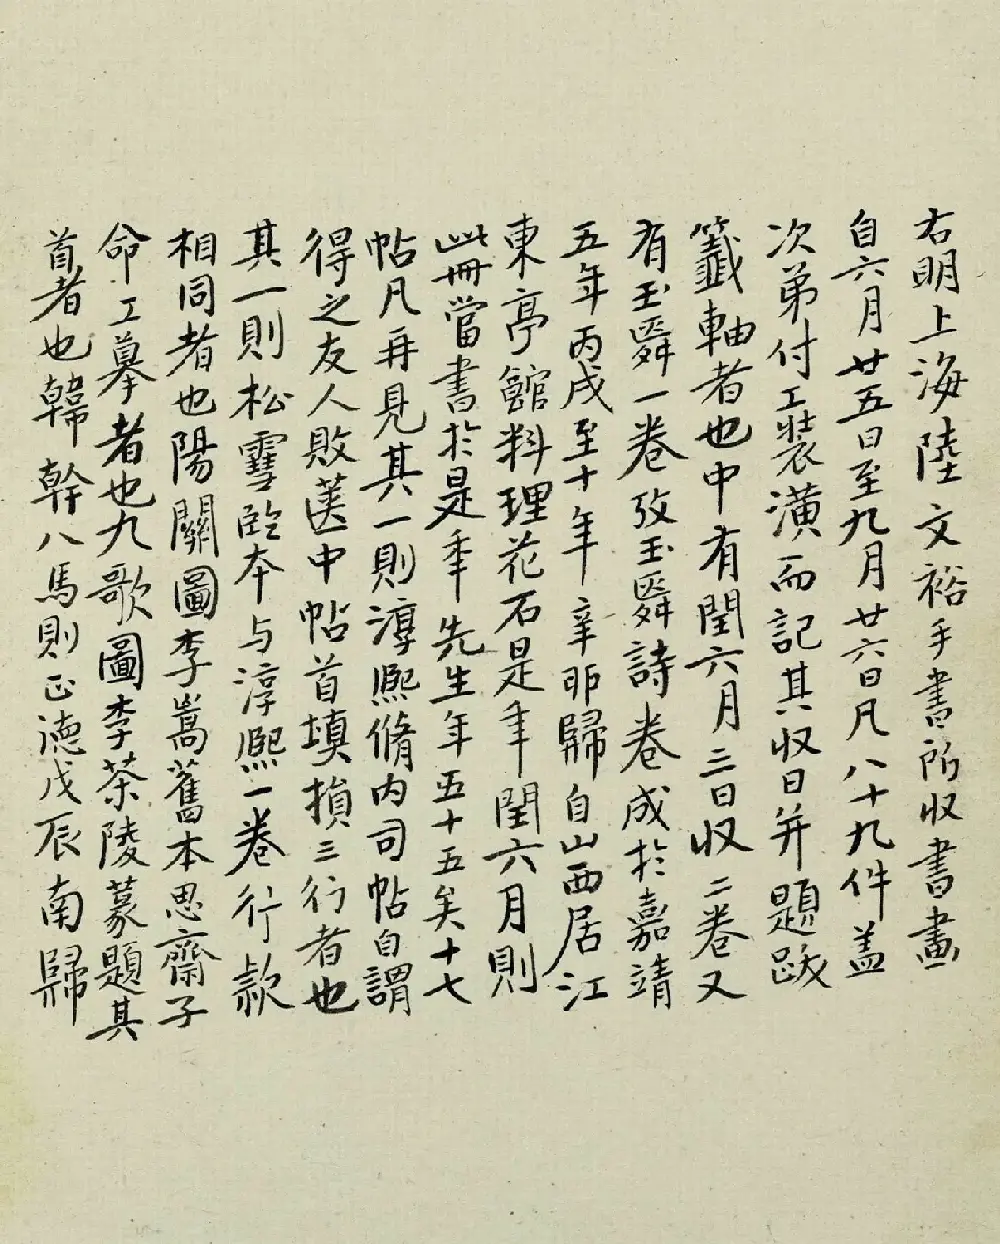 右明上海陸文裕手書所收書畫
自六月廿五日至九月廿六日凡八十九件蓋
次弟付工裝潢而記其收日并題跋
籤軸者也中有閏六月三日収二卷又
有玉舜一卷攷玉舜詩卷成於嘉靖
五年丙戌至十年辛卯歸自山西居江
東亭館料理花石是年閏六月則
此冊當書於是年先生年五十五矣十七
帖凡再見其一則淳熙脩内司帖自謂
得之友人敗篋中帖首填損三行者也
其一則松雪臨本与淳熙一卷行款
相同者也陽關圖李嵩舊本思齋子
命工摹者也九歌圖李茶陵篆題其
首者也韓幹八馬則正德戊辰南歸